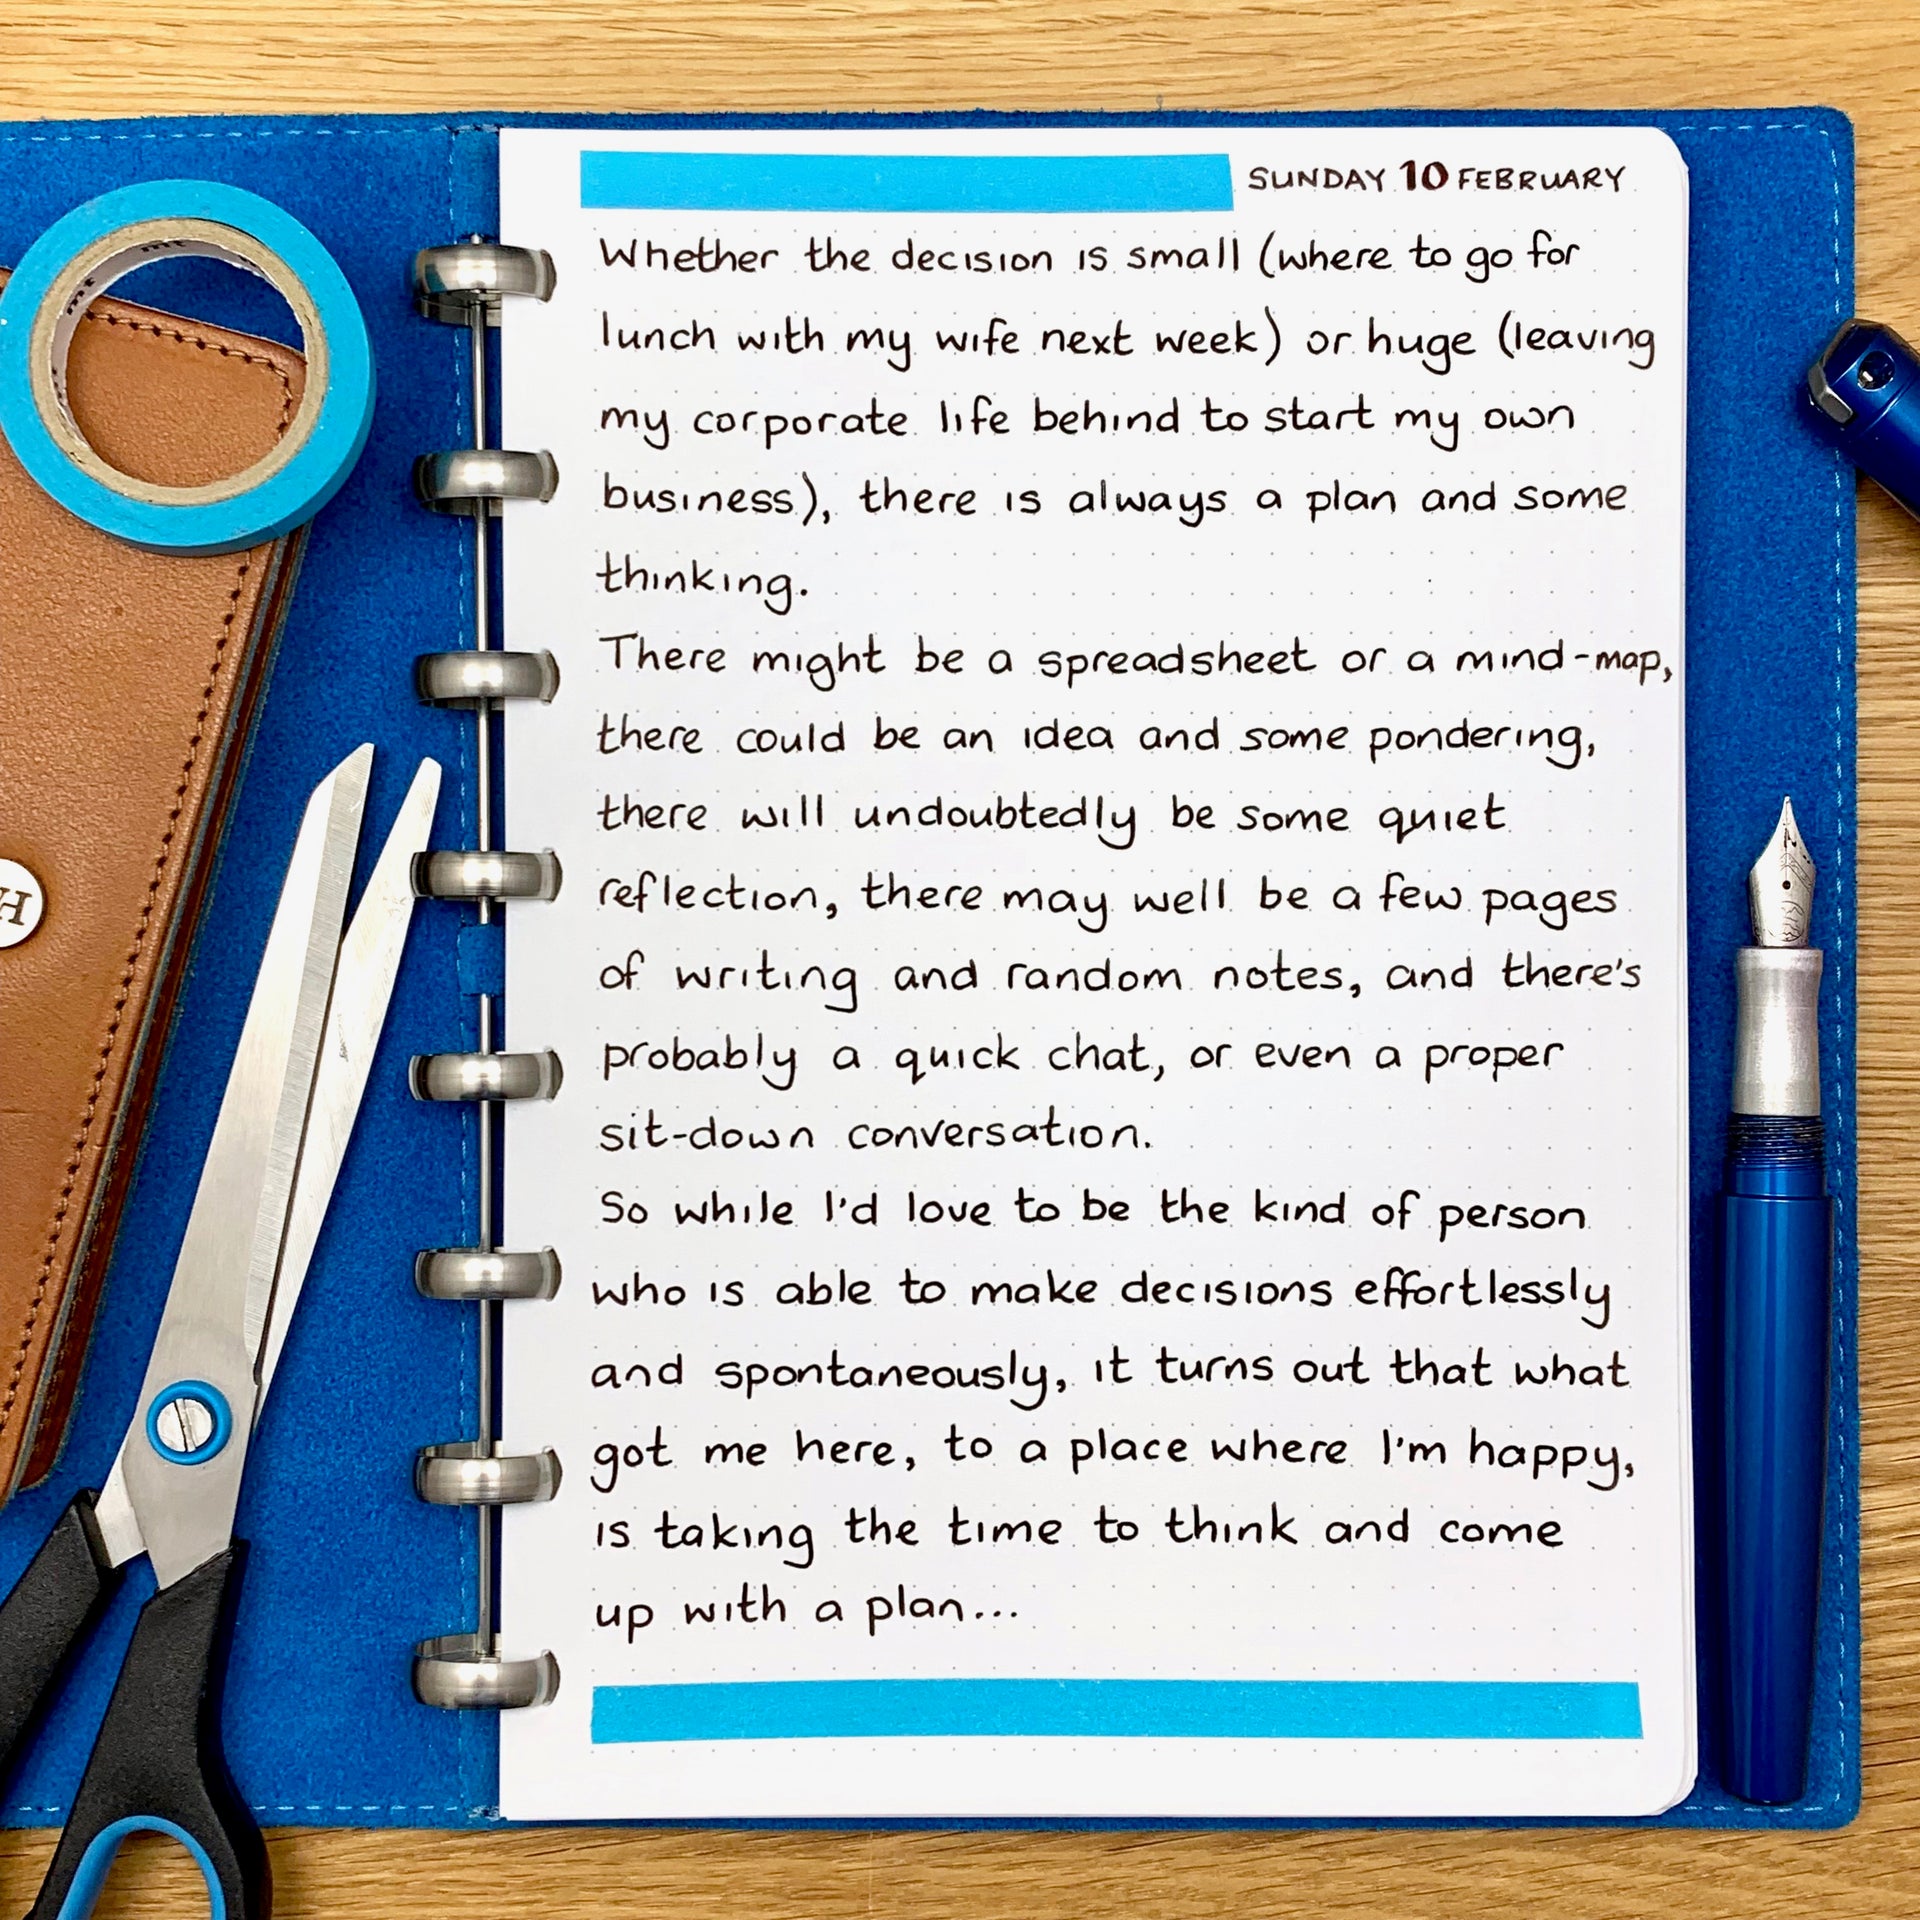 mt
mt
mt
H
SUNDAY 10 FEBRUARY
Whether the decision is small (where to go for
lunch with my wife next week) or huge (leaving
my corporate life behind to start my own
business), there is always a plan and some
thinking.
There might be a spreadsheet or a mind-map,
there could be an idea and some pondering,
there will undoubtedly be some quiet
reflection, there may well be a few pages
of writing and random notes, and there's
probably a quick chat, or even a proper
sit-down conversation.
So while I'd love to be the kind of person
who is able to make decisions effortlessly
and spontaneously, it turns out that what
got me here, to a place where I'm happy,
is taking the time to think and come
up with a plan...